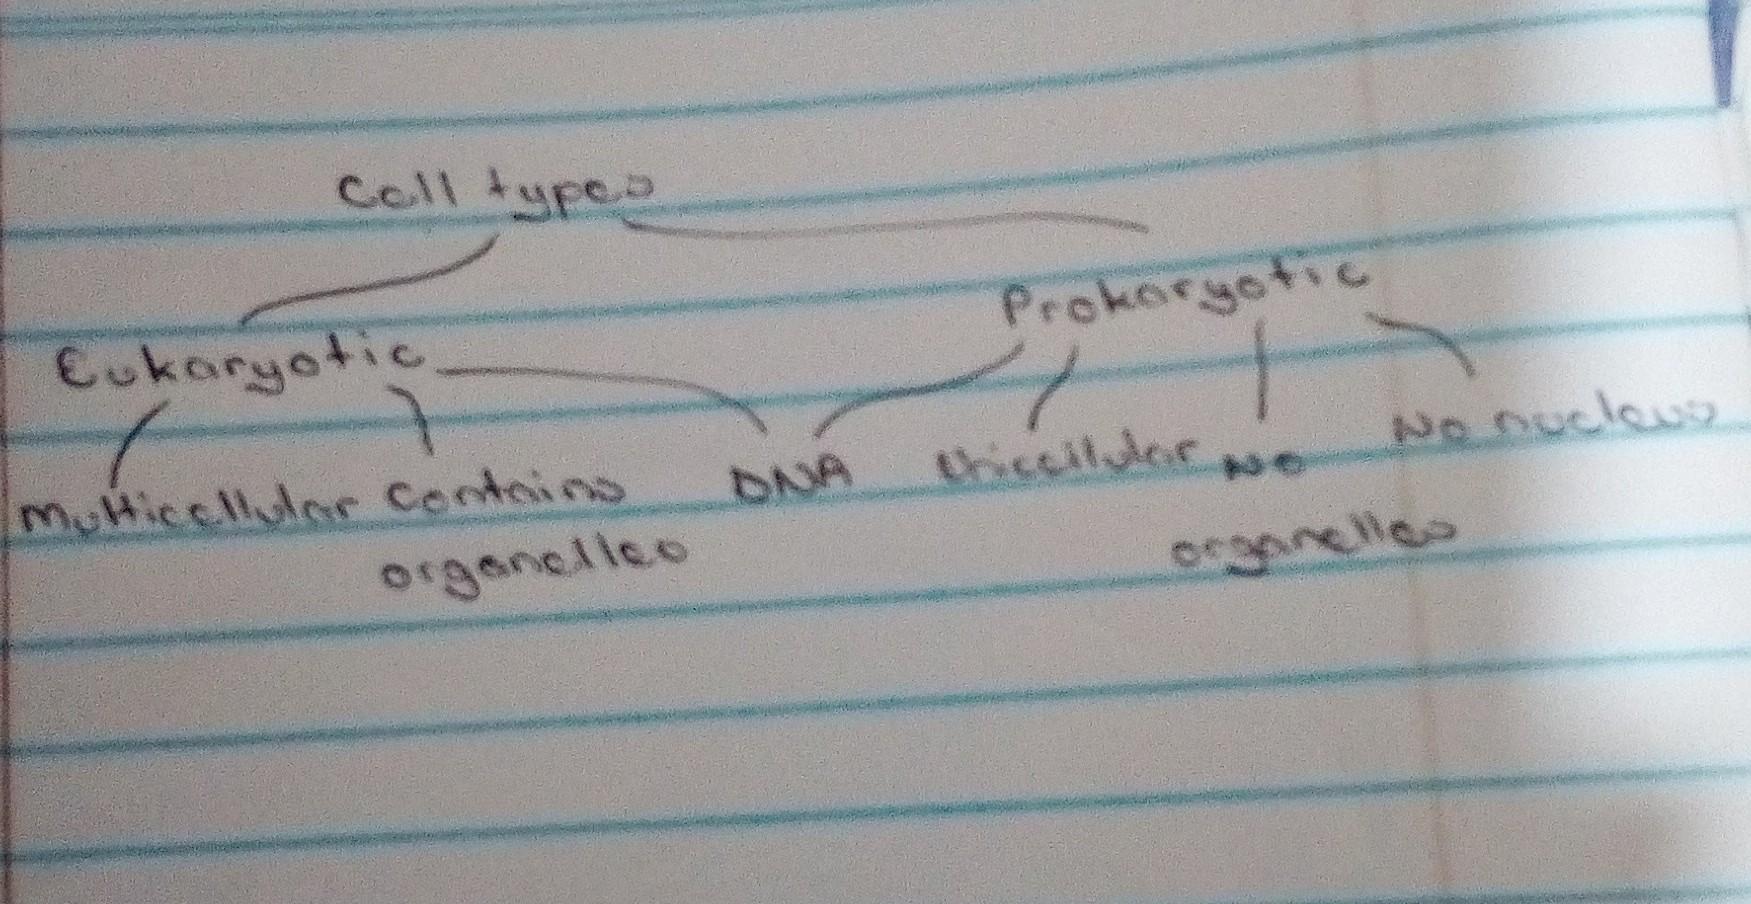 Cell types
Eukaryotic Prokaryotic
Multicellular Contains DNA Unicellular No No nucleus
organelles organelles